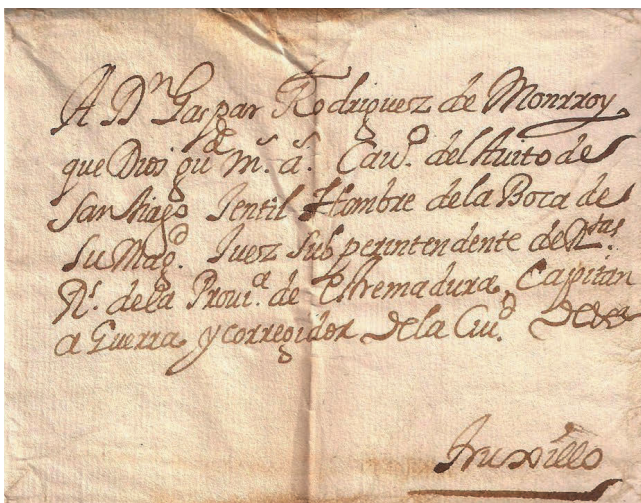 A Dn Gaspar Rodriguez de Monrroy
que Dios gude ms. as. Cauo. del Auito de
Santhiago Jentil Hombre de la Boca de
Su Magd. Juez Subperintendente de Rtas.
Rs. de la Prouia. de Estremadura, Capitan
a Guerra, y corregidor de la Ciud.
Truxillo